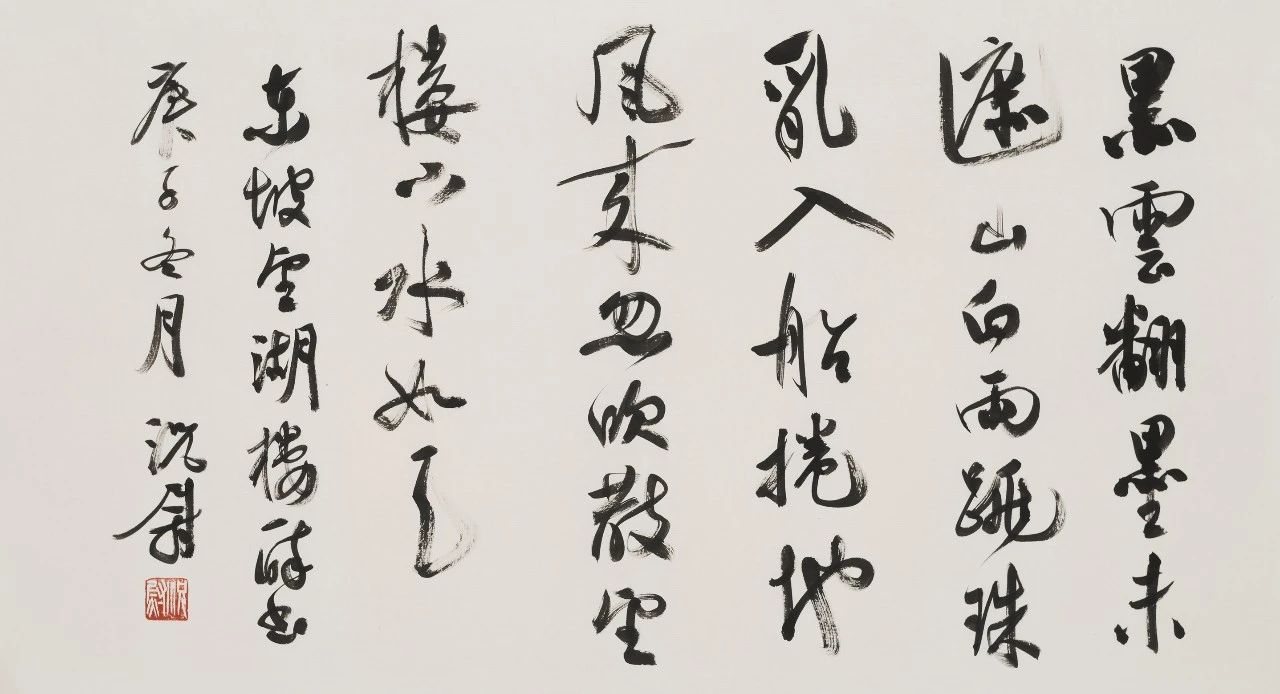 黑雲翻墨未
遮山白雨跳珠
亂入船捲地
風来忽吹散望
樓下水如天
東坡望湖樓醉書
庚子冬月